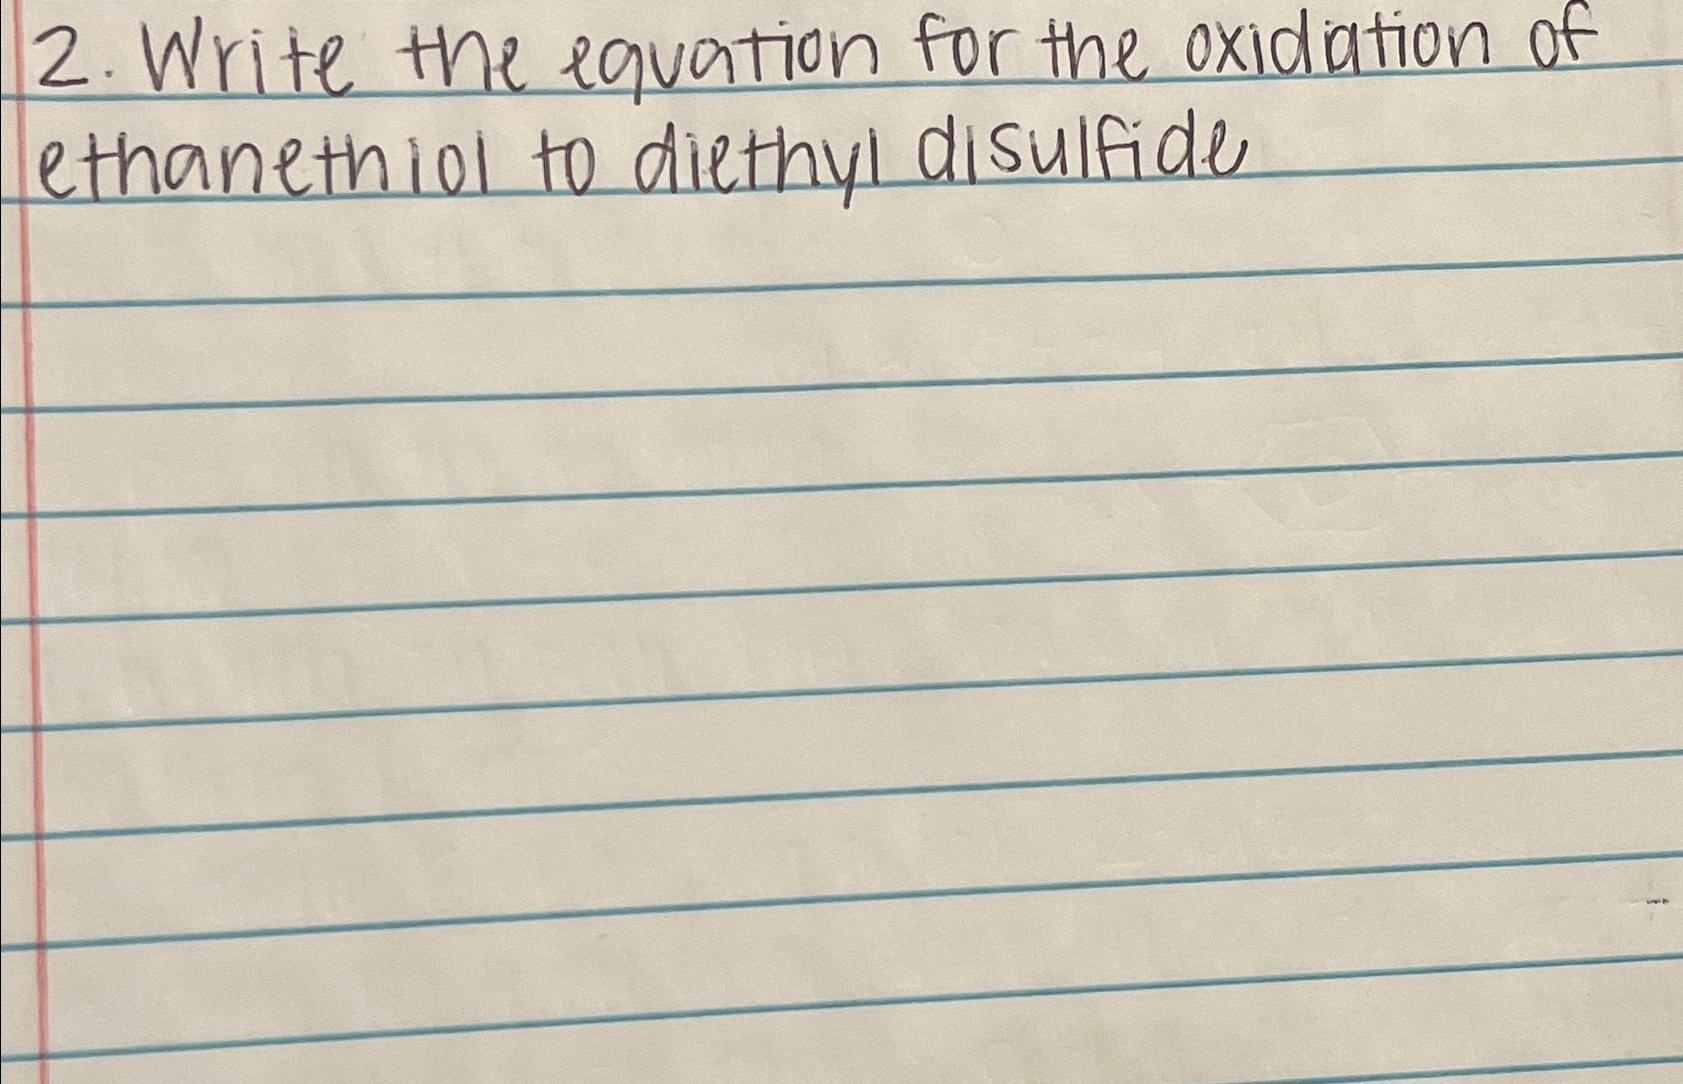 2. Write the equation for the oxidation of
ethanethiol to diethyl disulfide